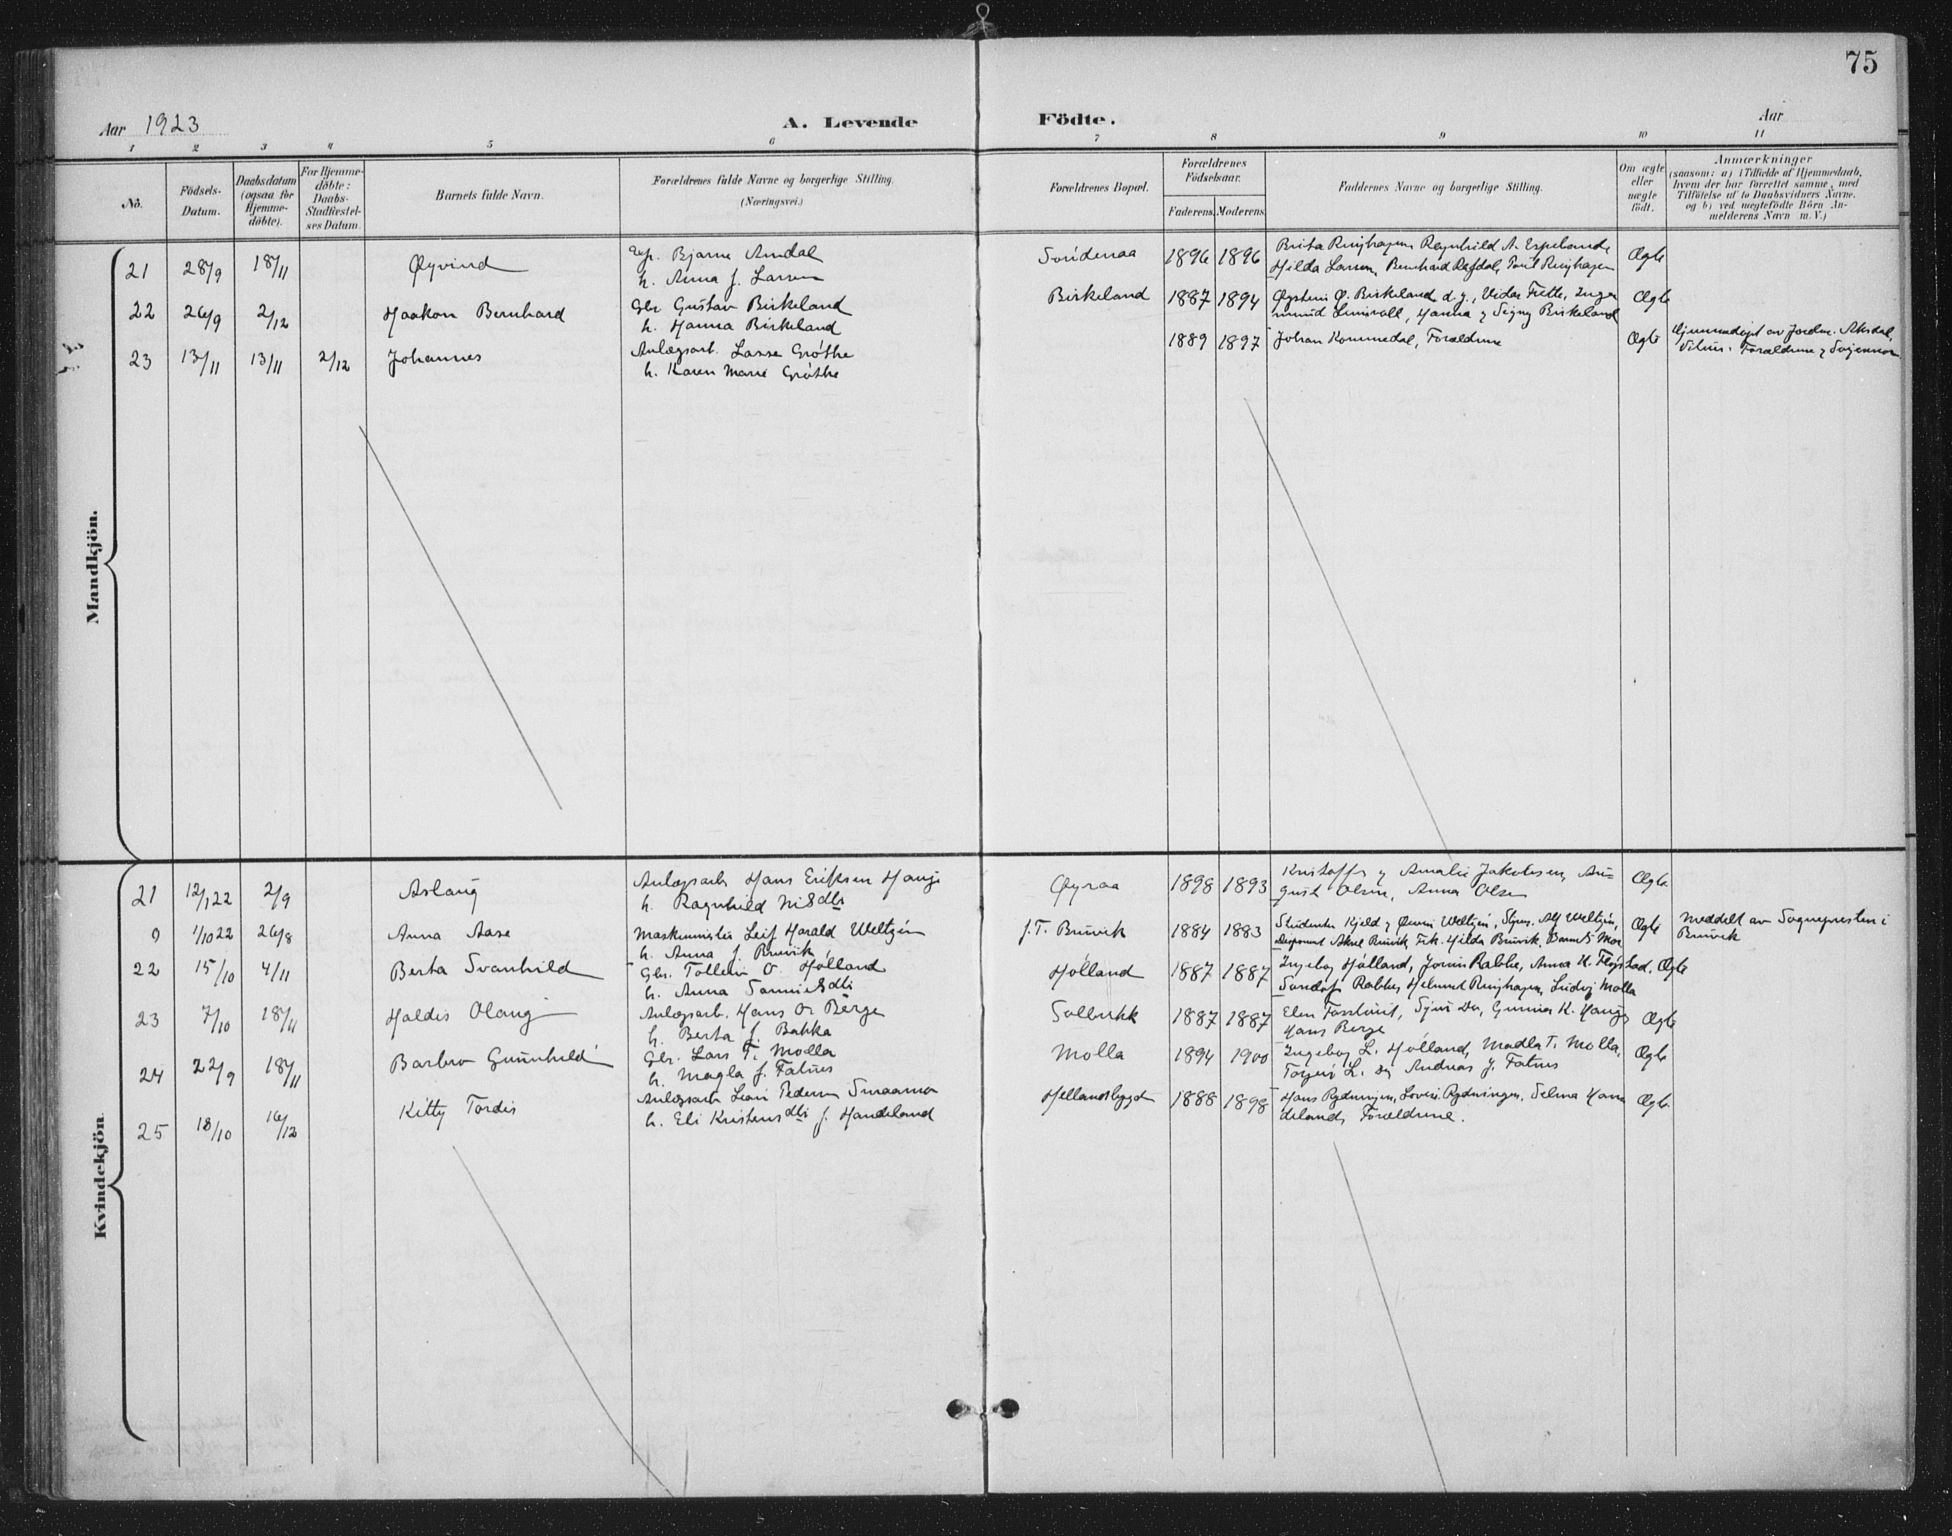 75
Aar 1923 A. Levende Födte. Aar
1 2 3 4 5 6 7 8 9 10 11
No. Födsels-Datum. Daabsdatum (ogsaa for Hjemmedöbte). For Hjemmedöbte: Daabs-Stadfæstelses Datum. Barnets fulde Navn. Forældrenes fulde Navne og borgerlige Stilling. (Næringsvei.) Forældrenes Bopæl. Forældrenes Födselsaar. Faderens. Moderens. Faddernes Navne og borgerlige Stilling. Om ægte eller uægte födt. Anmærkninger (saasom: a) i Tilfælde af Hjemmedaab, hvem der har forrettet samme, med Tilföielse af to Daabsvidners Navne. og b) ved uægtefödte Börn Anmelderens Navn m. V.)
Mandkjön.
21 28/9 18/11 Øyvind Bjarne Amdal Sandenaa 1896 1896 Brita Ringhagen Ragnhild A. Espelande Ægte
h. Anna f. Larsen Hilda Larsen, Bernhard Ringhagen
22 26/9 2/12 Haakon Bernhard Gbr Gustav Birkeland Birkeland 1887 1894 Øystein Ø. Birkeland d. y., Vidar Fitte, Inge Ægte
h. Hanna Birkeland mund, Hanna & Signy Birkeland
23 13/11 13/11 2/12 Johannes Anlægsarb. Lasse Grøthe 1889 1897 Johan Kommedal, Forældrene Ægte Hjemmedøpt av Jordm. Aksdal,
h. Karen Marie Grøthe Forældrene &
Kvindekjön
21 12/1 22 2/9 Aslaug Anlægsarb Hans Eriksen Hauge Øyraa 1898 1893 Kristoffer & Amalie Jakobsen, Au- Ægte
h. Ragnhild Nilsdtr gust Olsen, Anna Olsen
9 1/10 22 26/8 Anna Aase Maskinmester Leif Harald Weltzien f.T. Bruvik 1884 1883 Studenter Kjeld & Weltzien, Alf Weltzien, Ægte Meddelt av Sognepresten i
h. Anna f. Bruvik Disponent Aksel Bruvik, Frk. Hilda Bruvik, Barnets Mor Bruvik
22 15/10 4/11 Berta Svanhild Gbr. Tollein O. Hølland Hølland 1887 1887 Ingeborg Hølland, Rabbe, Anna K. Ægte
h. Anna Rabbe, Helmut Ringhagen, Ludvig Molla
23 7/10 18/11 Haldis Olaug Anlægsarb. Hans O. Berge Solbrekk 1887 1887 Elen Gunnar K. Hauge, Ægte
h. Berta f. Bakka Hans Berge
24 22/9 18/11 Barbro Gunnhild Gbr. Lars T. Molla Molla 1894 1900 Ingeborg L. Hølland, Madla T. Molla, Ægte
h. Magla f. Fatnes L. Andreas J. Fatnes
25 18/10 16/12 Kitty Tordis Anlægsarb Pedersen Smaamo Hellandsbygd 1888 1898 Hans Rydningen, Lovise Rydningen, Selma Han Ægte
h. Eli Kristensdtr f. Handeland deland, Forældrene.